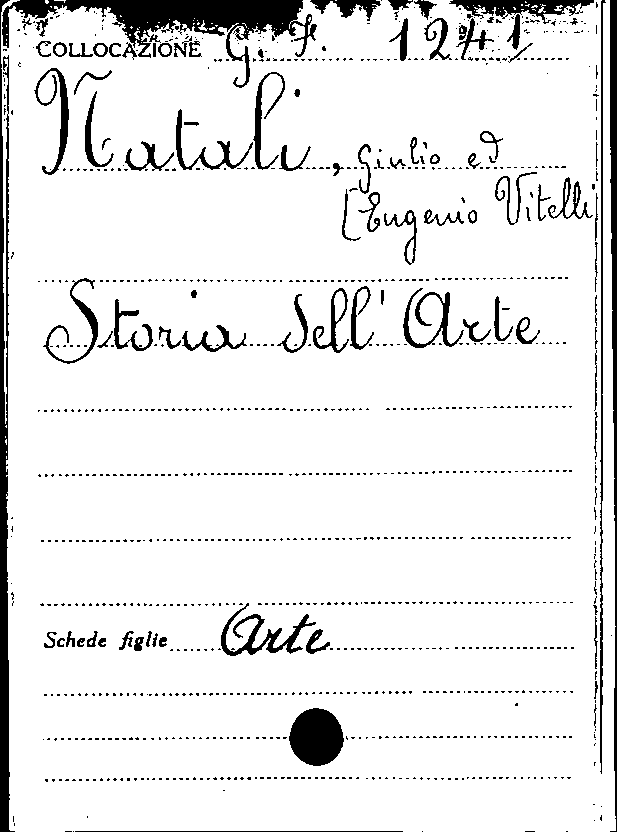 COLLOCAZIONE G. F. 1241
Natali, Giulio ed
[Eugenio Vitelli
Storia dell'Arte
Schede figlie Arte